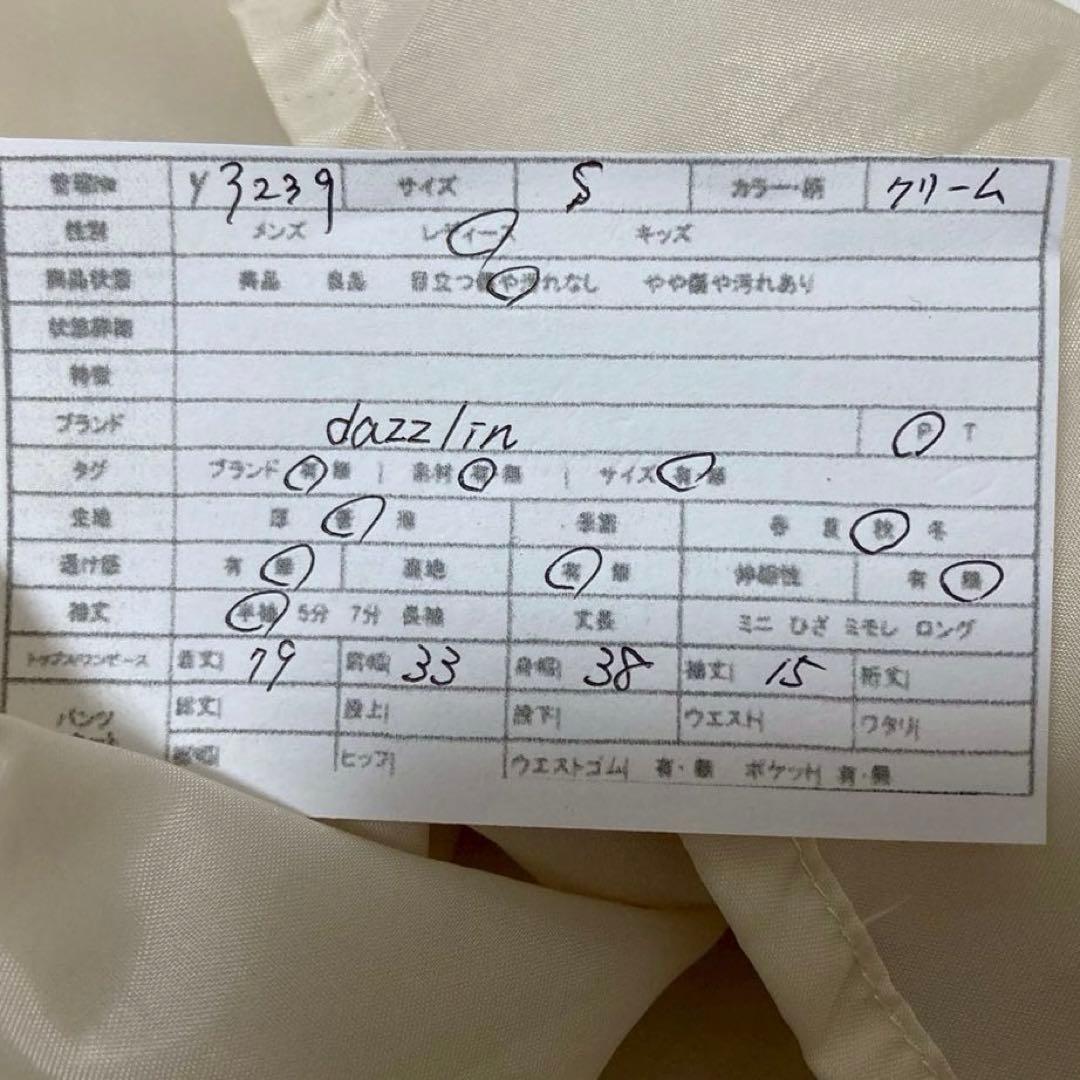 管理No Y3239 サイズ S カラー・柄 クリーム
性別 メンズ レディース キッズ
商品状態 美品 良品 目立つ傷や汚れなし やや傷や汚れあり
状態詳細
特徴
ブランド dazzlin P T
タグ ブランド 有 無 | 素材 有 無 | サイズ 有 無
生地 厚 普 薄 季節 春 夏 秋 冬
透け感 有 無 裏地 有 無 伸縮性 有 無
袖丈 半袖 5分 7分 長袖 丈長 ミニ ひざ ミモレ ロング
トップス/ワンピース 着丈| 79 肩幅| 33 身幅| 38 袖丈| 15 裄丈|
パンツ 総丈| 股上| 股下| ウエスト| ワタリ|
ヒップ| ウエストゴム| 有・無 ポケット| 有・無